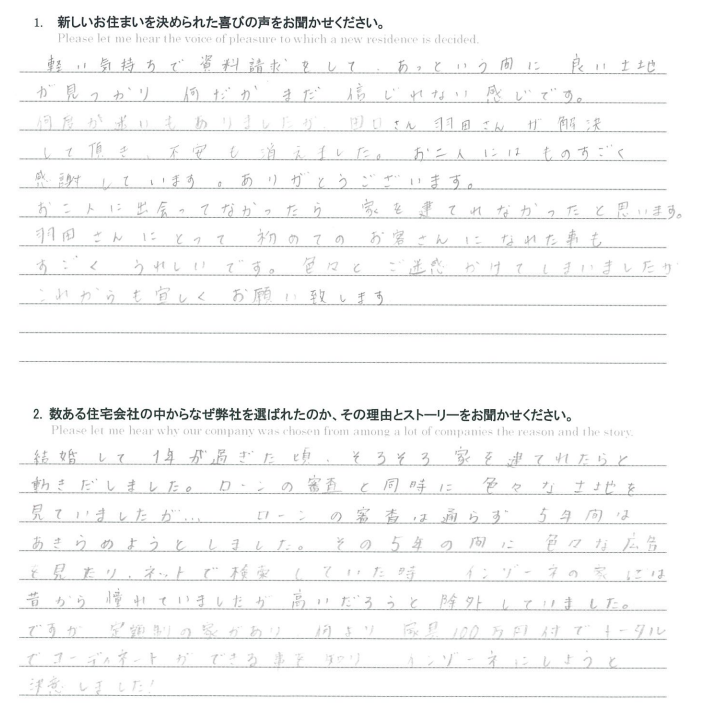 1. 新しいお住まいを決められた喜びの声をお聞かせください。
Please let me hear the voice of pleasure to which a new residence is decided.
軽い気持ちで資料請求をして、あっという間に良い土地
が見つかり何だかまだ信じれない感じです。
何度か迷いもありましたが、田口さん羽田さんが解決
して頂き、不安も消えました。お二人にはものすごく
感謝しています。ありがとうございます。
お二人に出会ってなかったら家を建てれなかったと思います。
羽田さんにとって初めてのお客さんになれた事も
すごくうれしいです。色々とご迷惑かけてしまいましたが
これからも宜しくお願い致します
2. 数ある住宅会社の中からなぜ弊社を選ばれたのか、その理由とストーリーをお聞かせください。
Please let me hear why our company was chosen from among a lot of companies the reason and the story.
結婚して1年が過ぎた頃、そろそろ家を建てれたらと
動きだしました。ローンの審査と同時に色々な土地を
見ていましたが… ローンの審査は通らず5年間は
あきらめようとしました。その5年の間に色々な広告
を見たり、ネットで検索していた時インゾーネの家には
昔から憧れていましたが高いだろうと除外していました。
ですが定額制の家があり何より家具100万円付でトータル
でコーディネートができる事を知りインゾーネにしようと
決意しました!